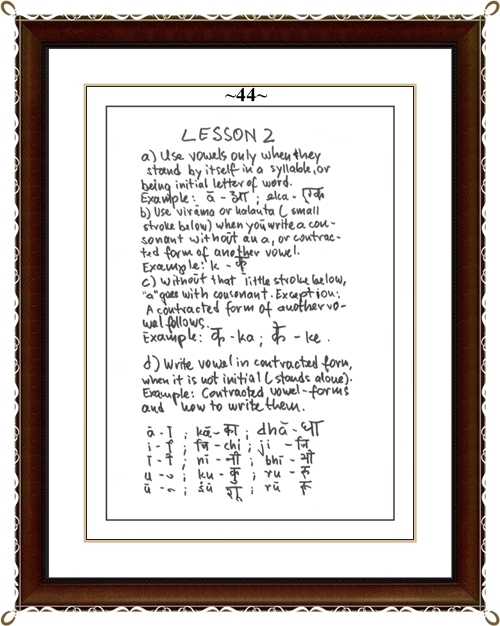 ~44~
LESSON 2
a) Use vowels only when they
stand by itself in a syllable, or
being initial letter of word.
Example: ā - आ ; eka - एक
b) Use virāma or halanta ( small
stroke below) when you write a con-
sonant without an a, or contrac-
ted form of another vowel.
Example: k - क्
c) Without that little stroke below,
"a" goes with consonant. Exception:
A contracted form of another vo-
wel follows.
Example: क - ka ; के - ke .
d) Write vowel in contracted form,
when it is not initial (stands alone).
Example: Contracted vowel-forms
and how to write them.
ā - ा ; kā - का ; dhā - धा
i - ि ; चि - chi ; ji - जि
ī - ी ; nī - नी ; bhī - भी
u - ु ; ku - कु ; ru - रु
ū - ू ; śū शू ; rū रू